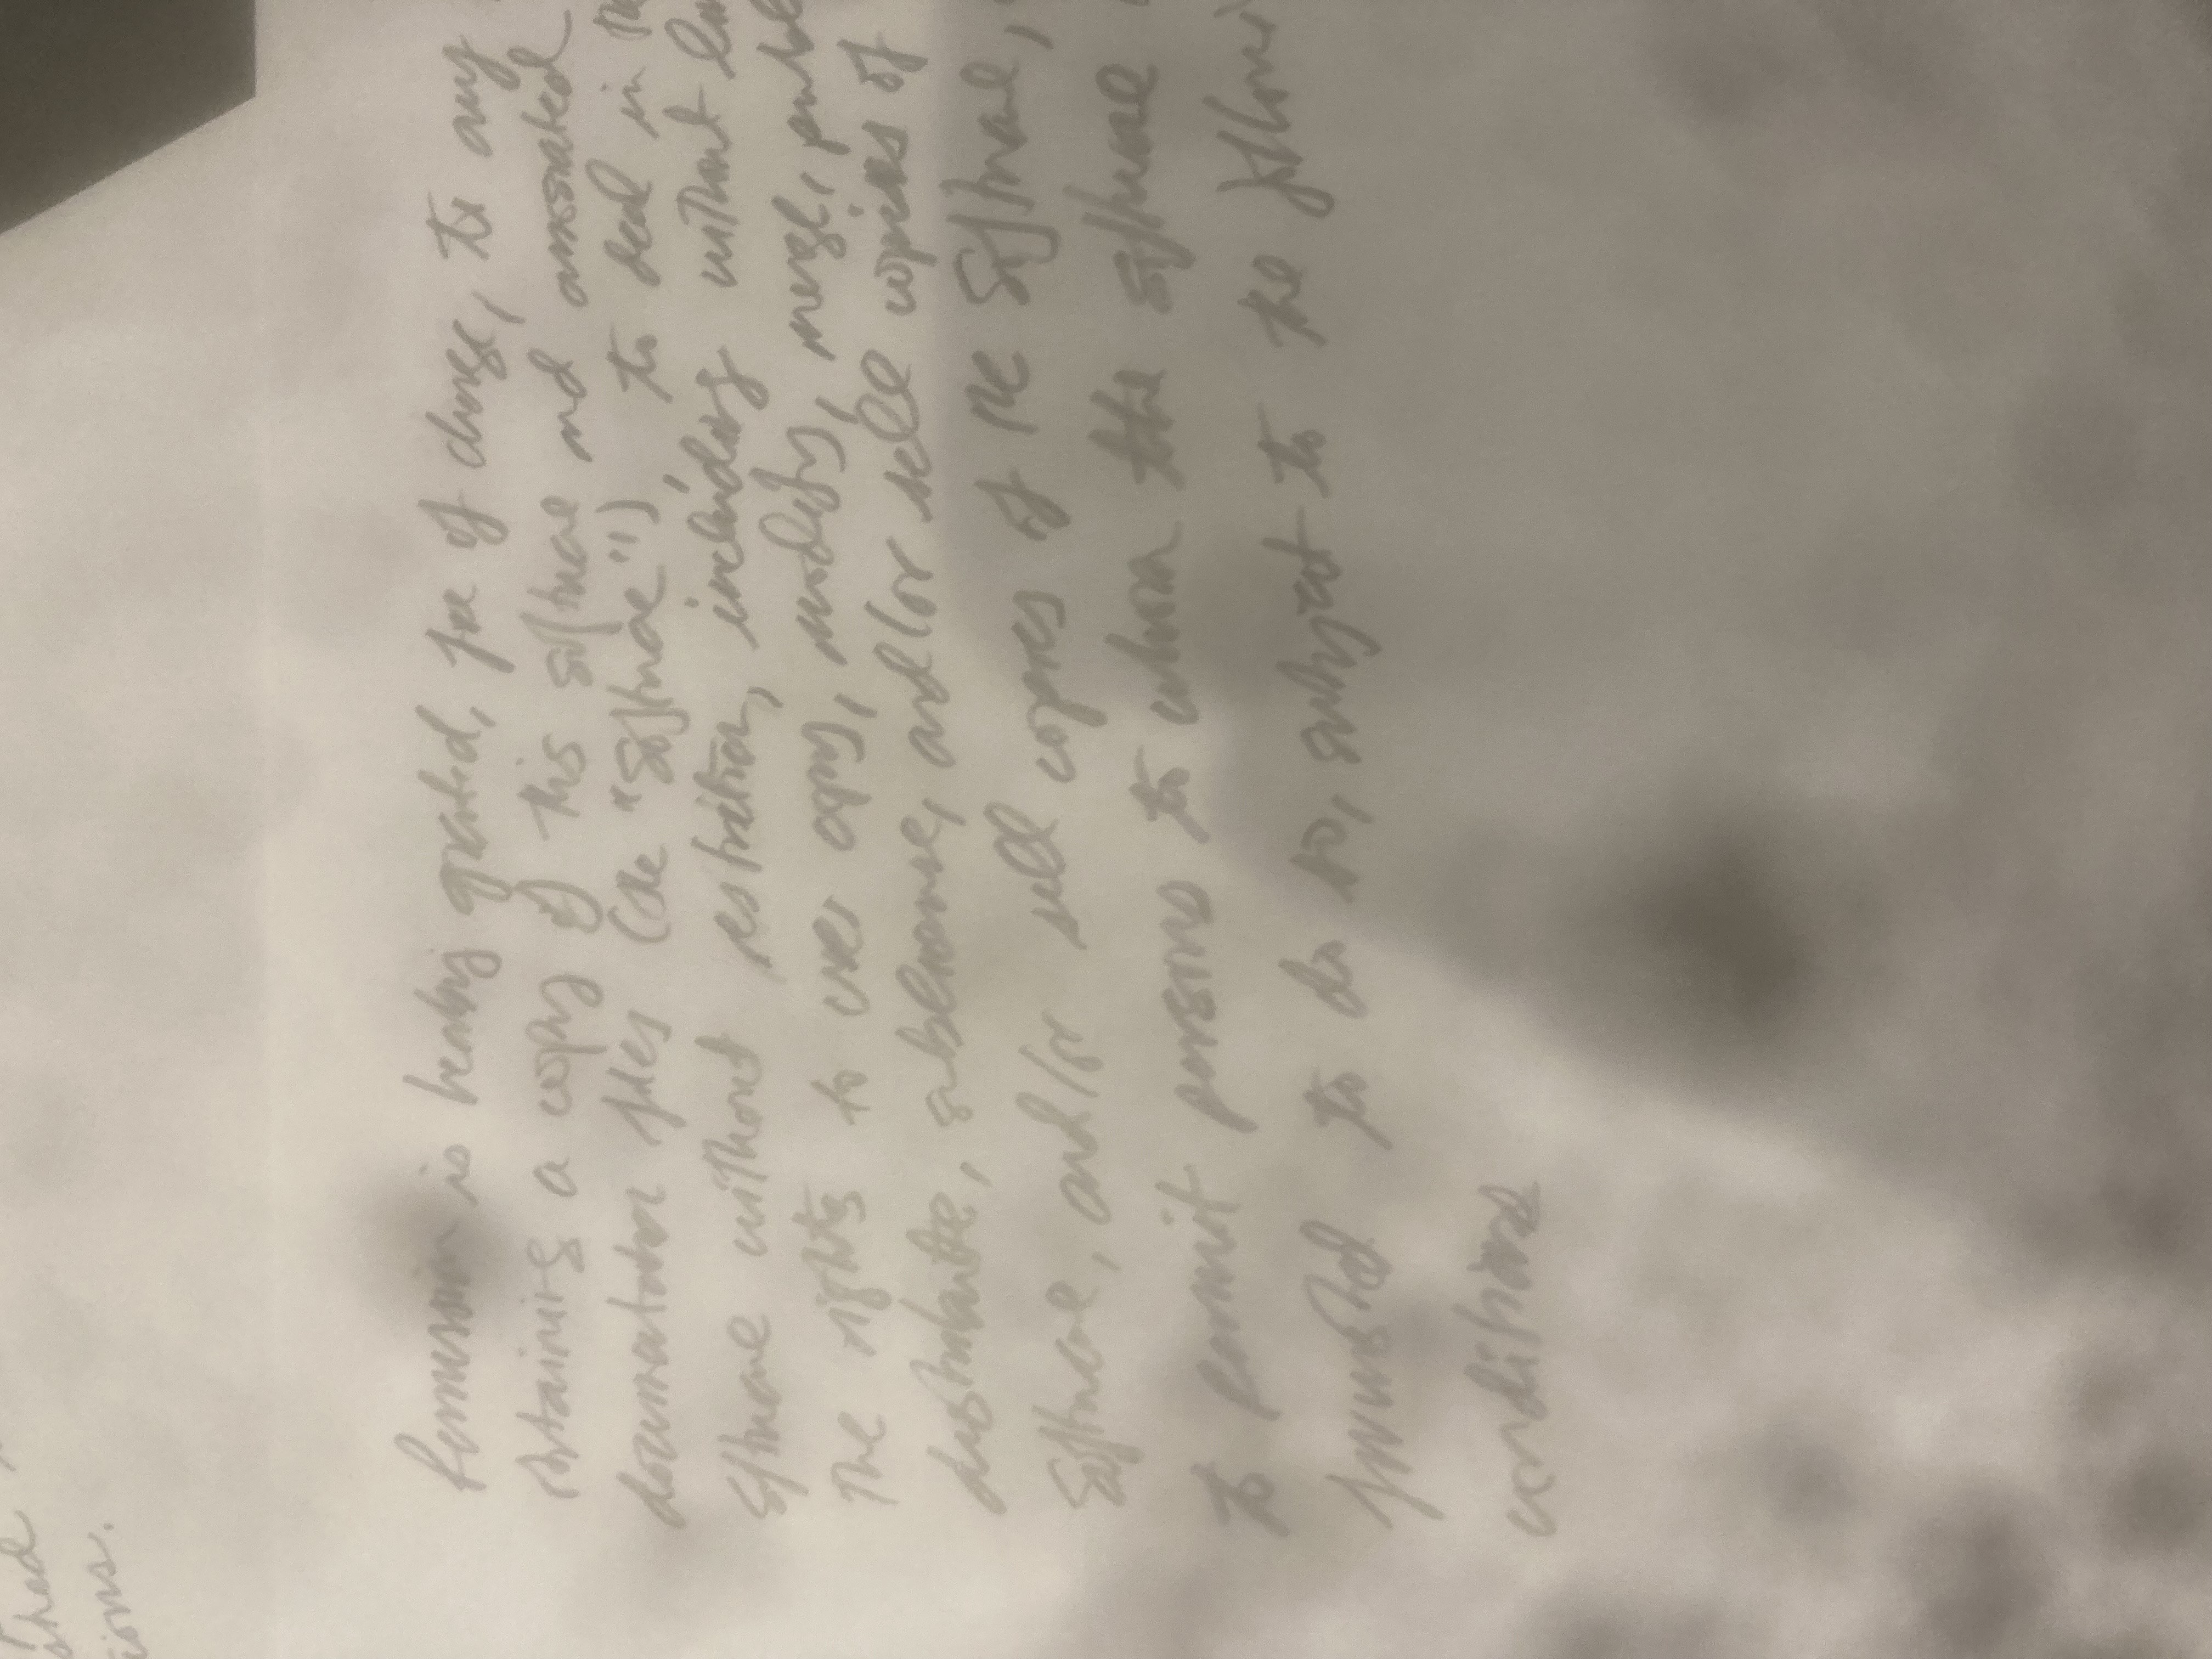 shed
tions.
Permission is hereby granted, free of charge, to any
obtaining a copy of this software and associated
documentation files (the "Software"), to deal in the
Software without restriction, including without
the rights to use, copy, modify, merge,
distribute, sublicense, and/or sell copies of
Software, and/or sell copies of the Software,
to permit persons to whom the software
furnished to do so, subject to the
conditions